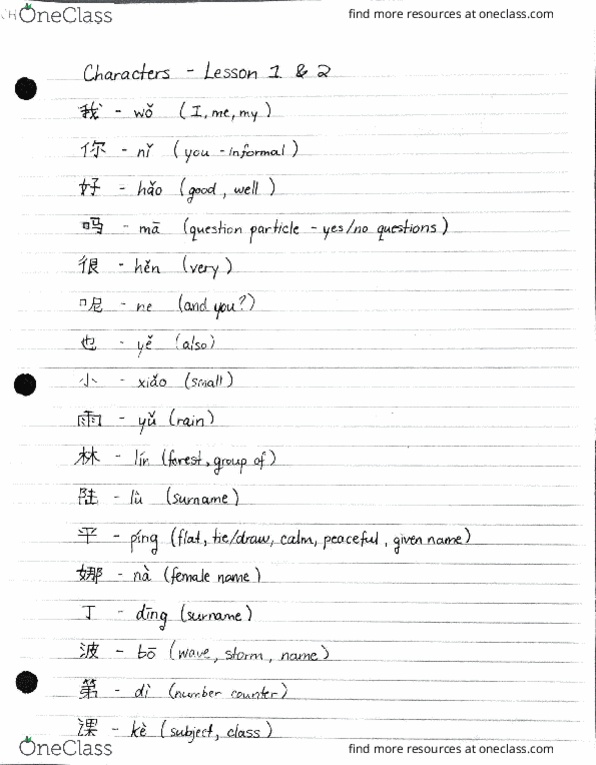 OneClass find more resources at oneclass.com
Characters - Lesson 1 & 2
我 - wǒ (I, me, my)
你 - nǐ (you - informal)
好 - hǎo (good, well)
吗 - mā (question particle - yes/no questions)
很 - hěn (very)
呢 - ne (and you?)
也 - yě (also)
小 - xiǎo (small)
雨 - yǔ (rain)
林 - lín (forest, group of)
陆 - lù (surname)
平 - píng (flat, tie/draw, calm, peaceful, given name)
娜 - nà (female name)
丁 - dīng (surname)
波 - bō (wave, storm, name)
第 - dì (number counter)
课 - kè (subject, class)
OneClass find more resources at oneclass.com